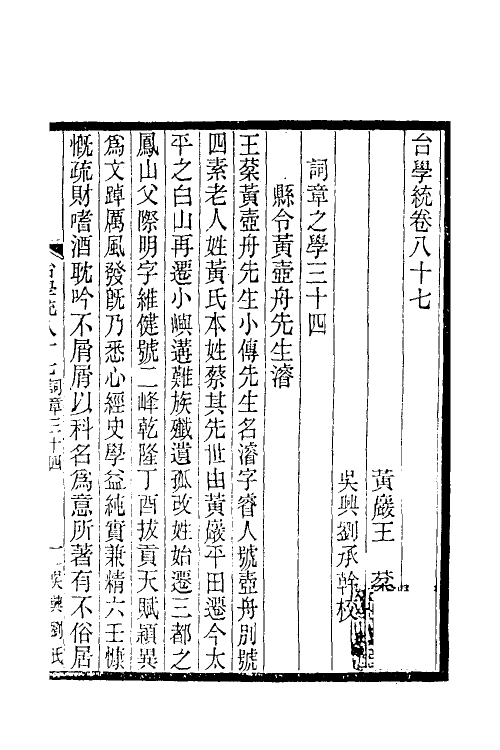 台學統卷八十七
黃巖王　棻
吳興劉承幹校
詞章之學三十四
縣令黃壺舟先生濬
王棻黃壺舟先生小傳先生名濬字睿人號壺舟別號
四素老人姓黃氏本姓蔡其先世由黃巖平田遷今太
平之白山再遷小嶼遘難族殲遺孤改姓始遷三都之
鳳山父際明字維健號二峰乾隆丁酉拔貢天賦穎異
爲文踔厲風發旣乃悉心經史學益純實兼精六壬慷
慨疏財嗜酒耽吟不屑屑以科名爲意所著有不俗居
台學統八十七詞章三十四　一　吳興劉氏